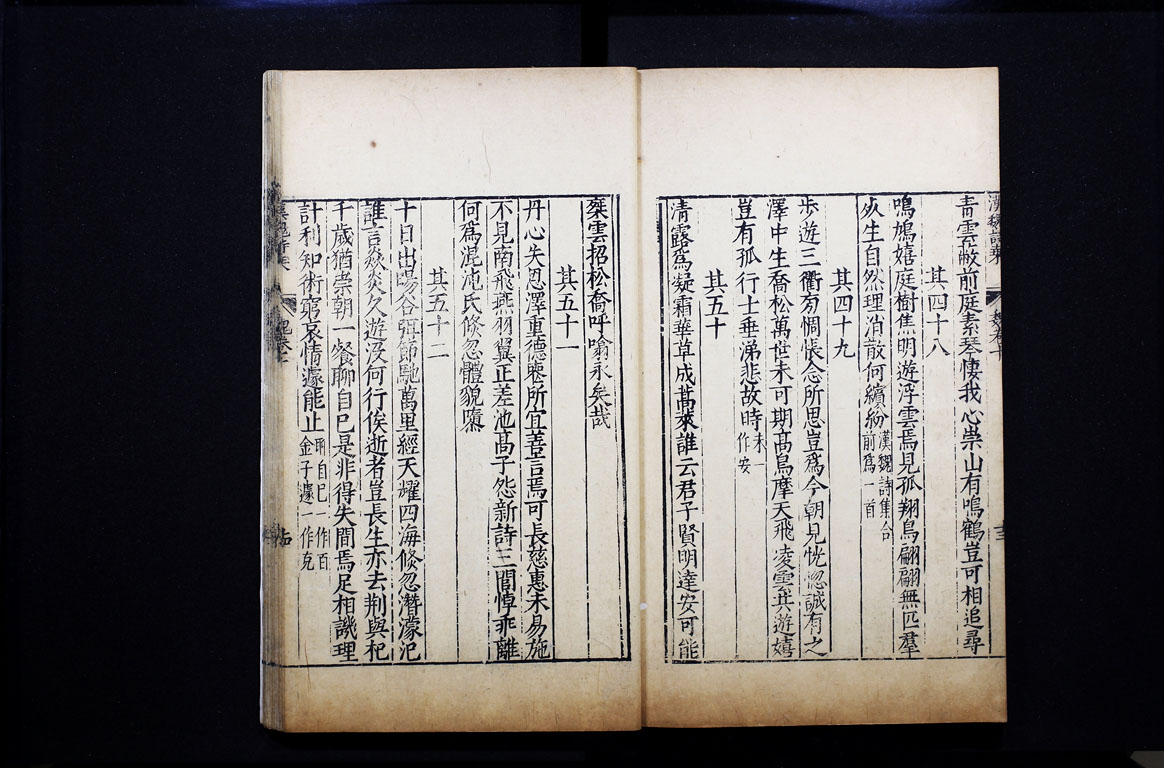 青雲蔽前庭素琴悽我心崇山有鳴鶴豈可相追尋
其四十八
鳴鳩嬉庭樹焦明遊浮雲焉見孤翔鳥翩翩無匹羣
死生自然理消散何繽紛漢魏詩集合前爲一首
其四十九
步遊三衢旁惆悵念所思豈爲今朝見恍惚誠有之
澤中生喬松萬世未可期高鳥摩天飛凌雲共遊嬉
豈有孤行士垂涕悲故時未一作安
其五十
清露爲凝霜華草成蒿萊誰云君子賢明達安可能
乗雲招松喬呼噏永矣哉
其五十一
丹心失恩澤重德喪所宜善言焉可長慈惠未易施
不見南飛燕羽翼正差池高子怨新詩三閭悼乖離
何爲混沌氏倐忽體貌隳
其五十二
十日出暘谷弭節馳萬里經天耀四海倐忽潛濛汜
誰言焱炎久遊沒何行俟逝者豈長生亦去荆與杞
千歲猶崇朝一餐聊自已是非得失間焉足相譏理
計利知術窮哀情遽能止聊自已一作百金子遽一作克